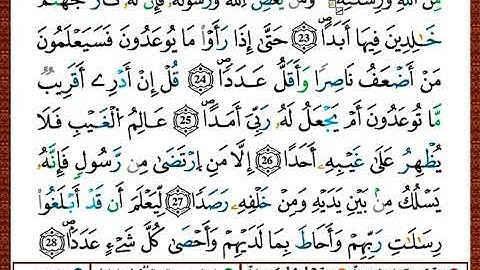 مِّنَ اَللَّهِ وَرِسَٰلَٰتِهِۦۖ وَمَنْ يَّعْصِ اِللَّهَ وَرَسُولَهُۥ فَإِنَّ لَهُۥ نَارَ جَهَنَّمَ
خَٰلِدِينَ فِيهَا أَبَداًۖ 23 حَتَّىٰٓ إِذَا رَأَوْاْ مَا يُوعَدُونَ فَسَيَعْلَمُونَ
مَنْ أَضْعَفُ نَاصِراً وَأَقَلُّ عَدَداًۖ 24 قُلْ إِنْ أَدْرِےٓ أَقَرِيبٌ
مَّا تُوعَدُونَ أَمْ يَجْعَلُ لَهُۥ رَبِّيَ أَمَداًۖ 25 عَٰلِمُ اُلْغَيْبِ فَلَا
يُظْهِرُ عَلَىٰ غَيْبِهِۦٓ أَحَداً 26 إِلَّا مَنِ اِرْتَضَىٰ مِن رَّسُولٖ فَإِنَّهُۥ
يَسْلُكُ مِنۢ بَيْنِ يَدَيْهِ وَمِنْ خَلْفِهِۦ رَصَداً 27 لِّيَعْلَمَ أَن قَدَ اَبْلَغُواْ
رِسَٰلَٰتِ رَبِّهِمْ وَأَحَاطَ بِمَا لَدَيْهِمْ وَأَحْصَىٰ كُلَّ شَےْءٍ عَدَداًۖ 28